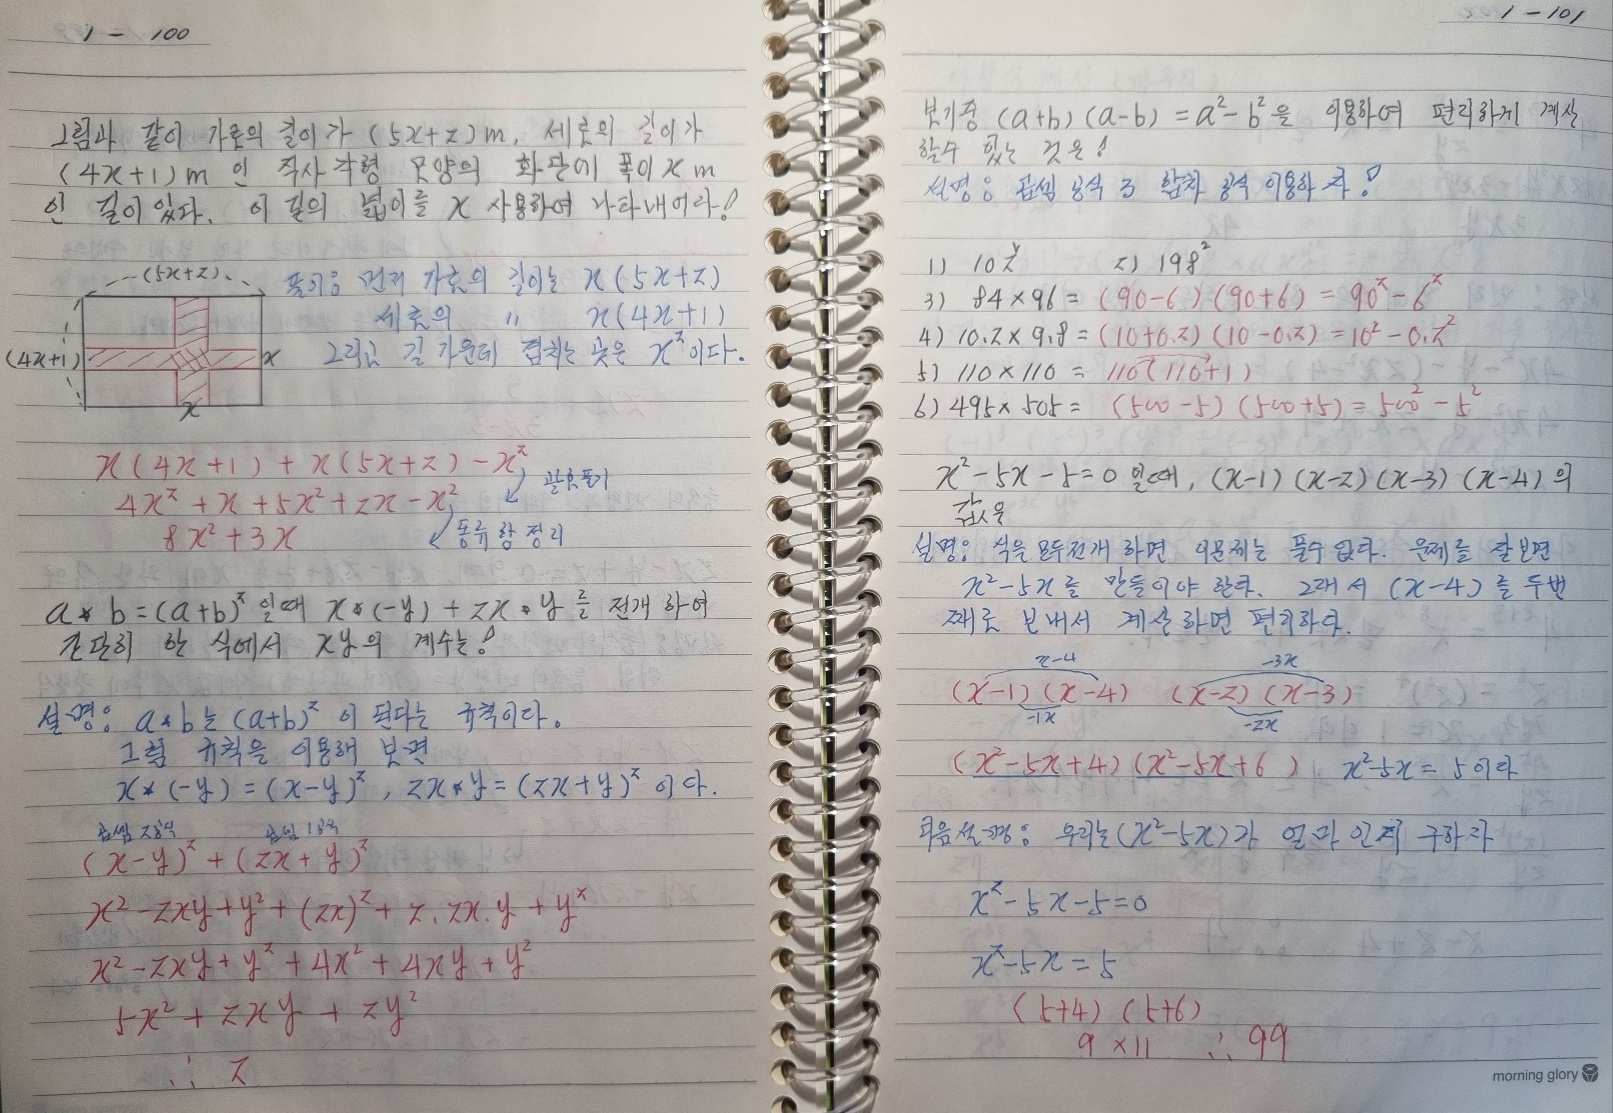 1 - 100
그림과 같이 가로의 길이가 (5x+2)m, 세로의 길이가
(4x+1)m 인 직사각형 모양의 화단에 폭이 x m
인 길이 있다. 이 길의 넓이를 x 사용하여 나타내어라!
(5x+2)
(4x+1)
x
x
풀이: 먼저 가로의 길이는 x(5x+2)
세로의 〃 x(4x+1)
그리고 길 가운데 겹치는 곳은 x²이다.
x(4x+1) + x(5x+2) - x²
괄호풀기
4x² + x + 5x² + 2x - x²
8x² + 3x
동류항 정리
a * b = (a+b)² 일때 x*(-y) + 2x*y 를 전개하여
간단히 한 식에서 xy의 계수는!
설명: a*b는 (a+b)² 이 된다는 규칙이다.
그럼 규칙을 이용해 보면
x*(-y) = (x-y)², 2x*y = (2x+y)² 이다.
곱셈 2공식 곱셈 1공식
(x-y)² + (2x+y)²
x² - 2xy + y² + (2x)² + 2.2x.y + y²
x² - 2xy + y² + 4x² + 4xy + y²
5x² + 2xy + 2y²
∴ 2
1 - 101
보기중 (a+b)(a-b) = a²-b²을 이용하여 편리하게 계산
할수 있는 것은!
설명: 곱셈 공식 3 합차 공식 이용하자!
1) 102² 2) 198²
3) 84×96 = (90-6)(90+6) = 90²-6²
4) 10.2×9.8 = (10+0.2)(10-0.2) = 10²-0.2²
5) 110×110 = 110(110+1)
6) 495×505 = (500-5)(500+5) = 500²-5²
x²-5x-5=0 일때, (x-1)(x-2)(x-3)(x-4)의
값은
설명: 식을 모두전개 하면 이문제는 풀수 없다. 문제를 잘보면
x²-5x를 만들어야 한다. 그래서 (x-4)를 두번
째로 보내서 계산하면 편리하다.
x-4 -3x
(x-1)(x-4) (x-2)(x-3)
-1x -2x
(x²-5x+4)(x²-5x+6) x²-5x = 5이다
다음설명: 우리는 (x²-5x)가 얼마인지 구하자
x²-5x-5=0
x²-5x=5
(5+4)(5+6)
9×11 ∴ 99
morning glory